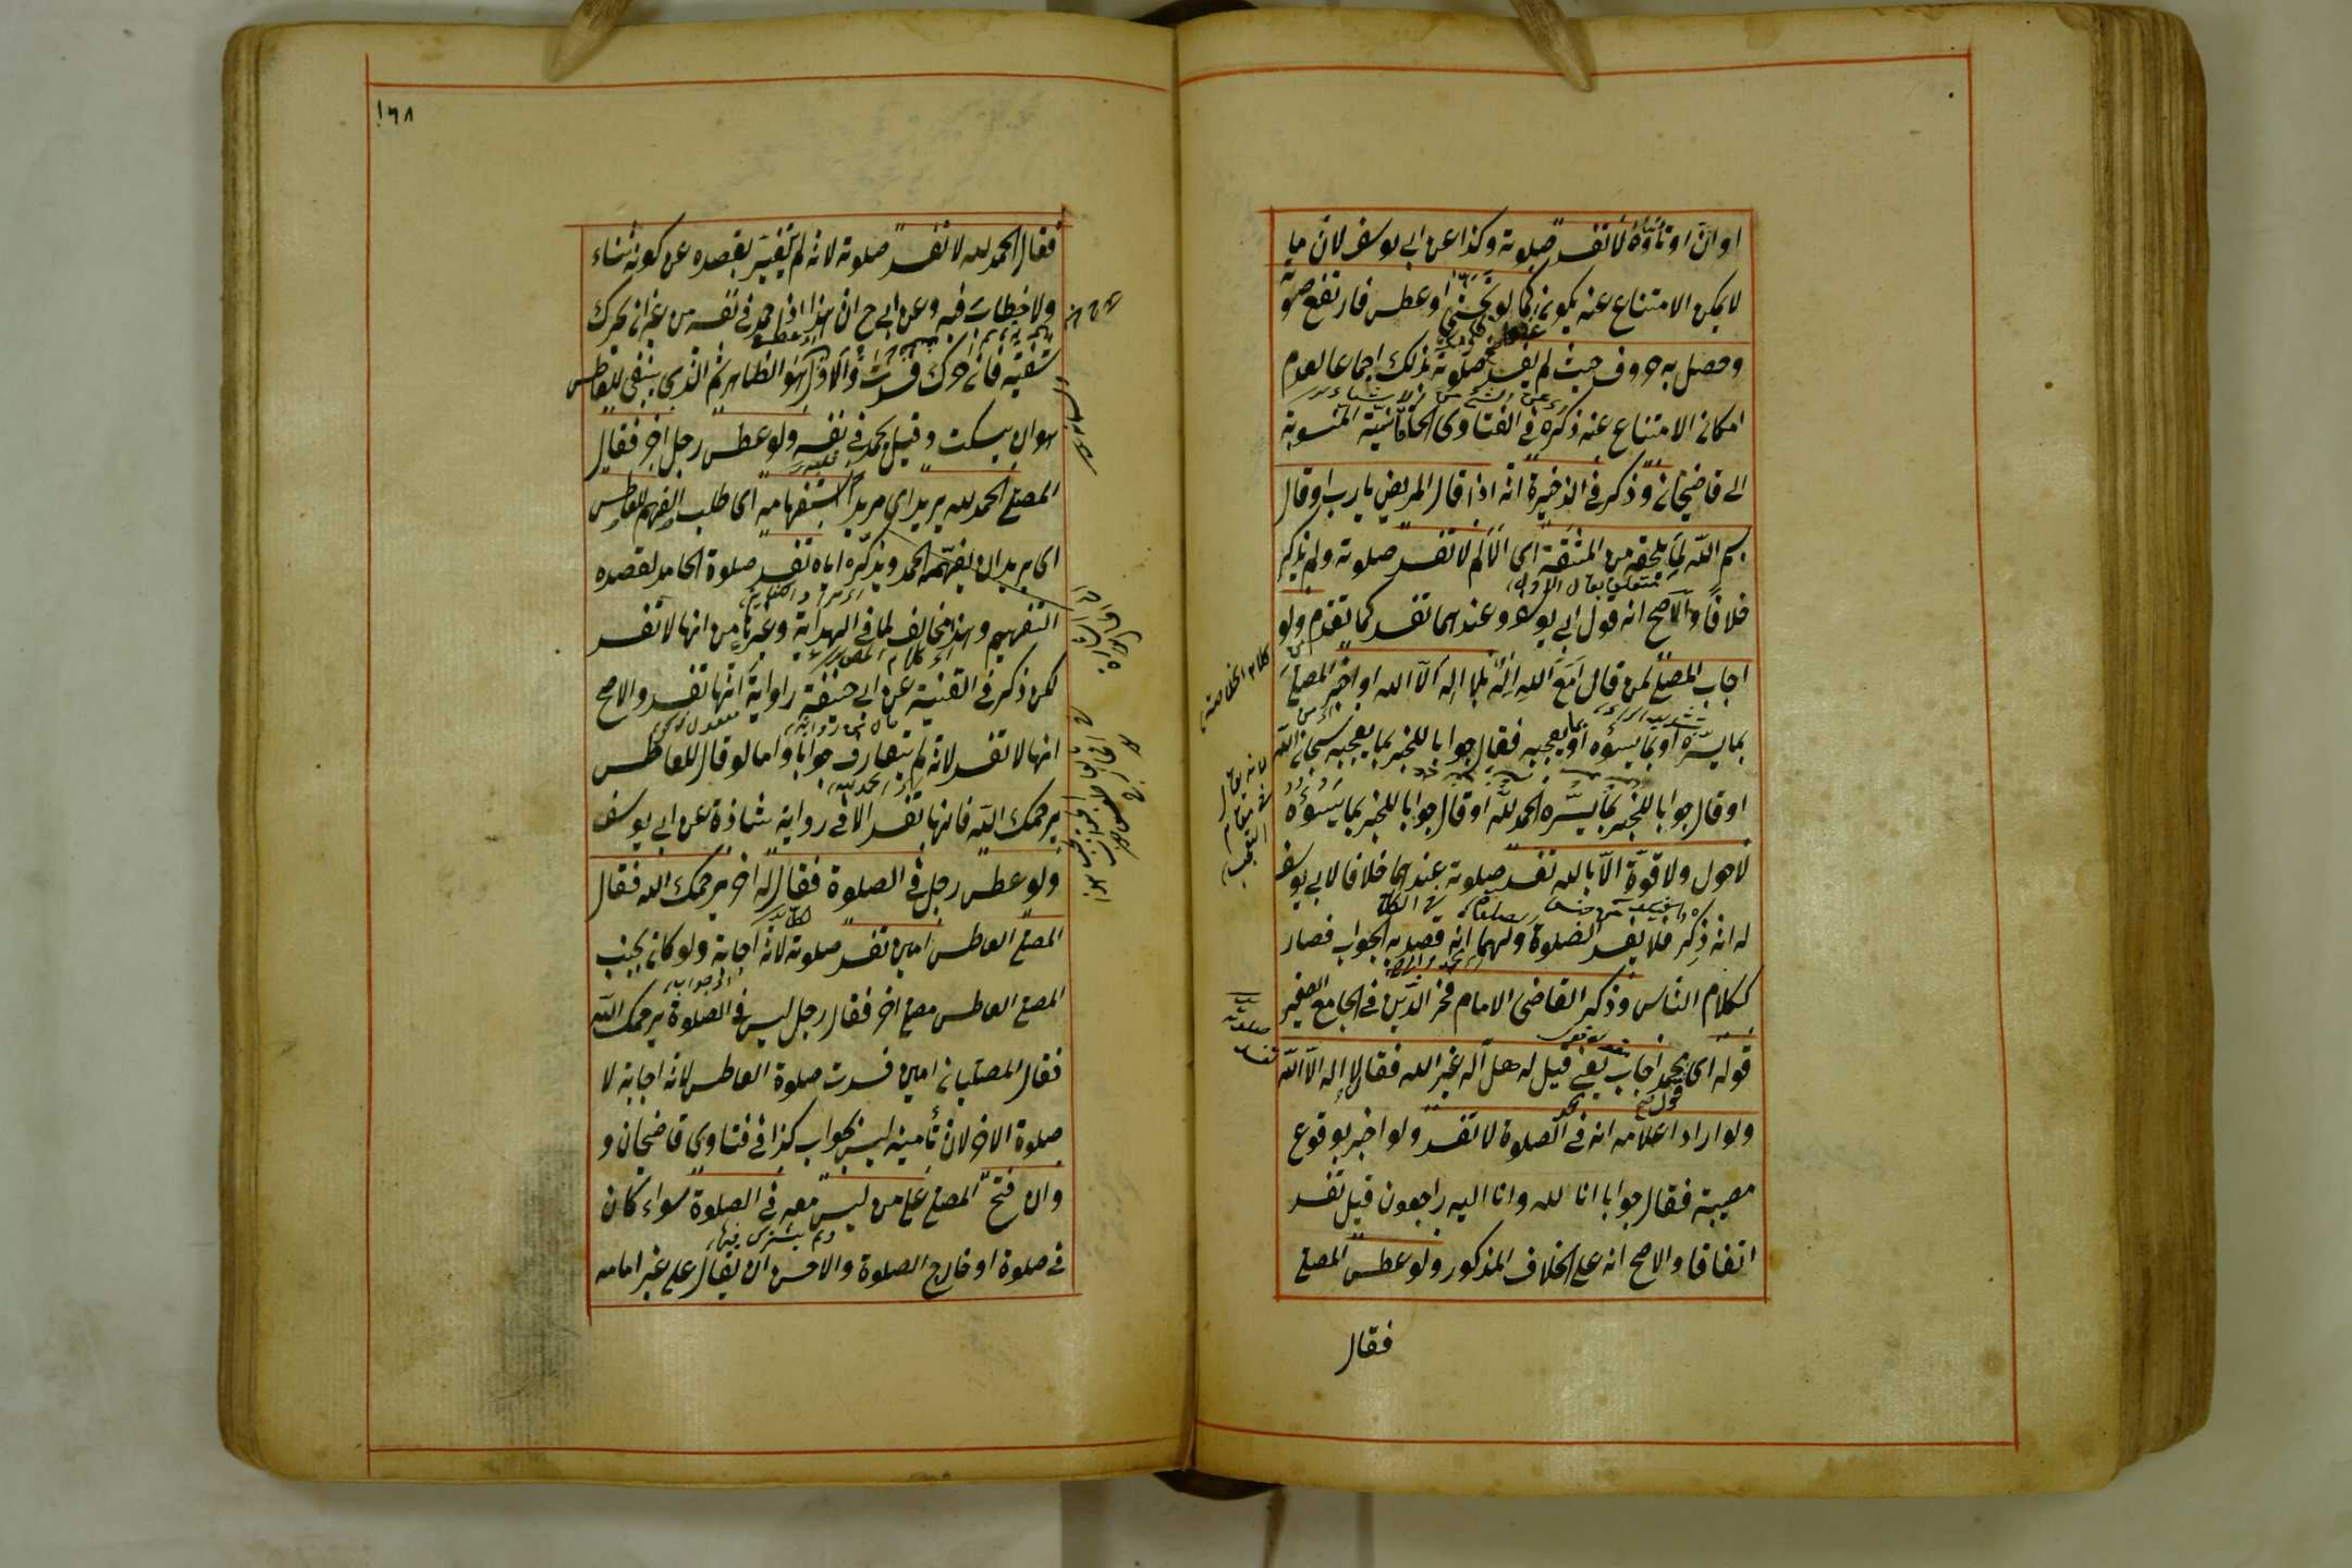 او انّ او تأوّه لا تفسد صلوته وكذا عن ابي يوسف لانّ مما
لا يمكن الامتناع عنه يكون كما لو تجشى او عطس فارتفع صوته
وحصل به حروف حيث لم يفسد صلوته بذلك اجماعا لعدم
امكان الامتناع عنه ذكره في الفتاوى الخاقانية المنسوبة
الى قاضيخان وذكر في الذخيرة انه اذا قال المريض يا رب او قال
بسم الله لما يلحقه من المشقة اى الألم لا تفسد صلوته ولم يذكر
خلافا والاصح انه قول ابي يوسف وعندهما تفسد كما تقدم ولو
اجاب المصلى لمن قال أمع الله اله بلا اله الا الله او اخبر المصلى
بما يسره او بما يسؤه او بما يعجبه فقال جوابا للخبر بما يعجبه سبحان الله
او قال جوابا للخبر بما يسّره الحمد لله او قال جوابا للخبر بما يسوؤه
لا حول ولا قوّة الّا بالله تفسد صلوته عندهما خلافا لابي يوسف
له انه ذكر فلا يفسد الصلوة ولهما انه قصد به الجواب فصار
ككلام الناس وذكر القاضى الامام فخر الدّين في الجامع الصغير
قوله اى محمد اجاب يعنى قيل له هل آله غير الله فقال لا إله الّا الله
ولو اراد اعلامه انه في الصلوة لا تفسد ولو اخبر بوقوع
مصيبة فقال جوابا انا لله وانا اليه راجعون قيل تفسد
اتفاقا والاصح انه على الخلاف المذكور ولو عطس المصلى
فقال
كلام الخلاصة
لانه يقال
في مقام
التعجب
صلوته
تفسد
١٦٨
فقال الحمد لله لا تفسد صلوته لانه لم يتغير بقصده عن كونه ثناء
ولا خطاب فيه وعن ابي ح ان هذا اذا حمد في نفسه من غير ان يحرك
شفتيه فان حرك فسدت والاول هو الظاهر ثم الذى ينبغى للعاطس
هو ان يسكت وقيل يحمد في نفسه ولو عطس رجل اخر فقال
المصلى الحمد لله يريد اى مريدا استفهامه اى طلب الفهم للعاطس
اى يريد ان يفهمه الحمد ويذكره اياه تفسد صلوة الحامد لقصده
التفهيم وهذا مخالف لما في الهداية وغيرها من انها لا تفسد
لكن ذكر في القنية عن ابي حنيفة رواية انها تفسد والاصح
انها لا تفسد لانه لم يتعارف جوابا واما لو قال للعاطس
يرحمك الله فانها تفسد الا في رواية شاذة عن ابي يوسف
ولو عطس رجل في الصلوة فقال له اخر يرحمك الله فقال
المصلى العاطس امين تفسد صلوته لانه اجابة ولو كان بجنب
المصلى العاطس مصلى اخر فقال رجل ليس في الصلوة يرحمك الله
فقال المصليان امين فسدت صلوة العاطس لانه اجابة لا
صلوة الاخر لان تأمينه ليس بجواب كذا في فتاوى قاضيخان و
وان فتح المصلى على من ليس معه في الصلوة سواء كان
في صلوة او خارج الصلوة والاحسن ان يقال على غير امامه